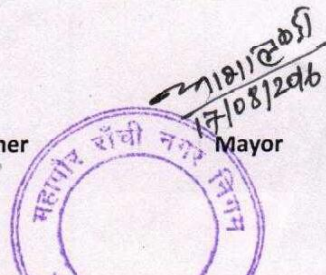 17/08/2016
ner
Mayor
महापौर राँची नगर निगम